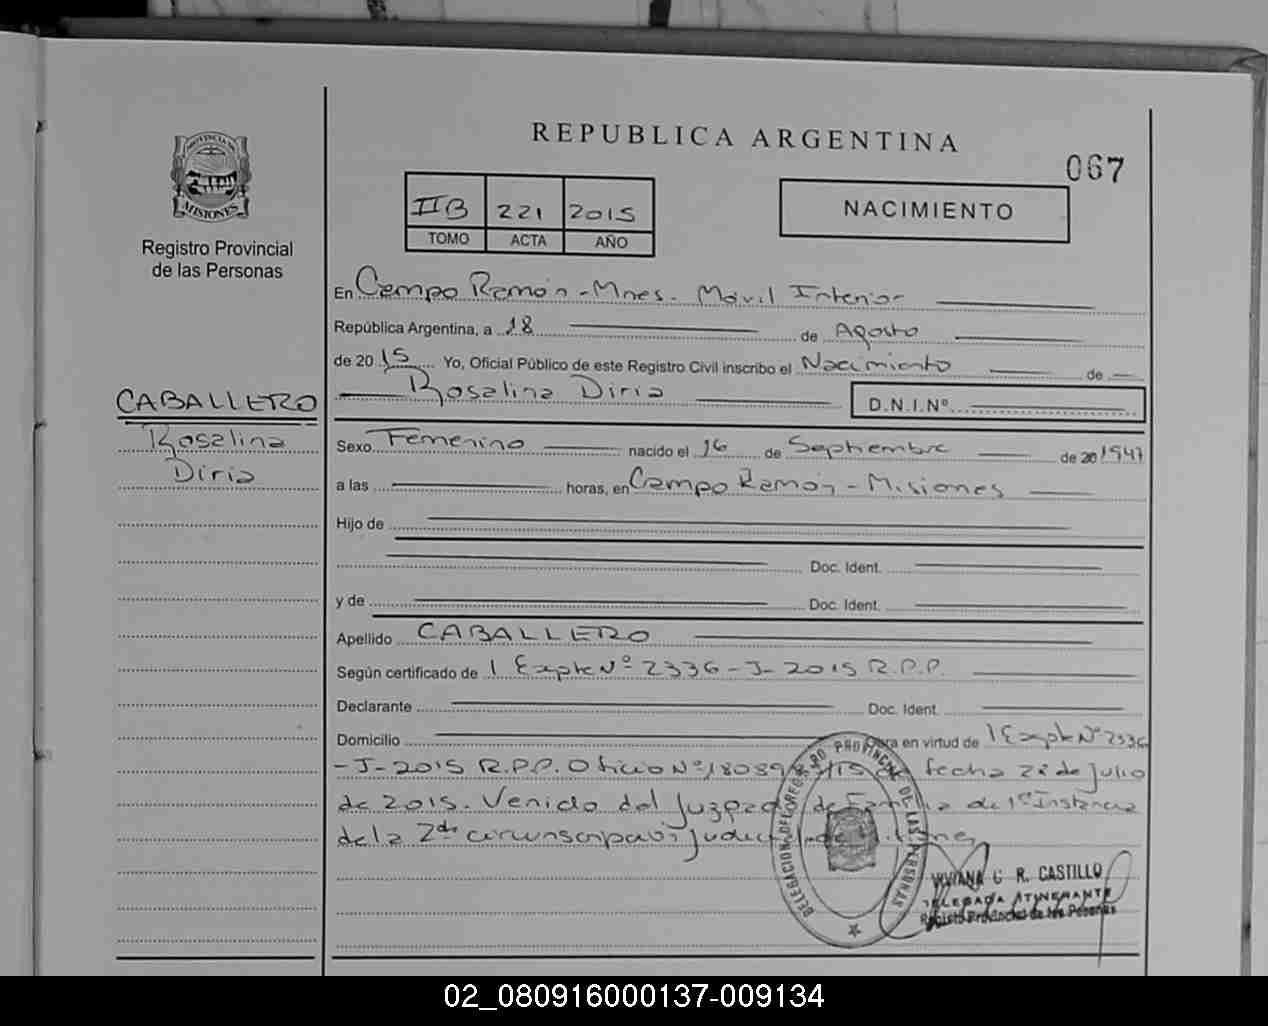 PROVINCIA DE
MISIONES
Registro Provincial
de las Personas
REPUBLICA ARGENTINA
067
IIB 221 2015
TOMO ACTA AÑO
NACIMIENTO
En Campo Ramón - Mnes. Móvil Interior
República Argentina, a 18 de Agosto
de 2015 Yo, Oficial Público de este Registro Civil inscribo el Nacimiento de
Rosalina Diria D.N.I.Nº
CABALLERO
Rosalina
Diria
Sexo Femenino nacido el 16 de Septiembre de 20 1947
a las horas, en Campo Ramón - Misiones
Hijo de
Doc. Ident.
y de Doc. Ident.
Apellido CABALLERO
Según certificado de 1 Expte Nº 2336-J-2015 R.P.P.
Declarante Doc. Ident.
Domicilio Obra en virtud de 1 Expte Nº 2336
-J-2015 R.P.P. Oficio Nº 18089 /15 de fecha 22 de Julio
de 2015. Venido del Juzgado de Familia de 1º Instancia
de la 2da circunscripción Judicial de Misiones
DELEGACION DEL REGISTRO PROVINCIAL DE LAS PERSONAS
VIVIANA G R. CASTILLO
DELEGADA ITINERANTE
Registro Provincial de las Personas
02_080916000137-009134